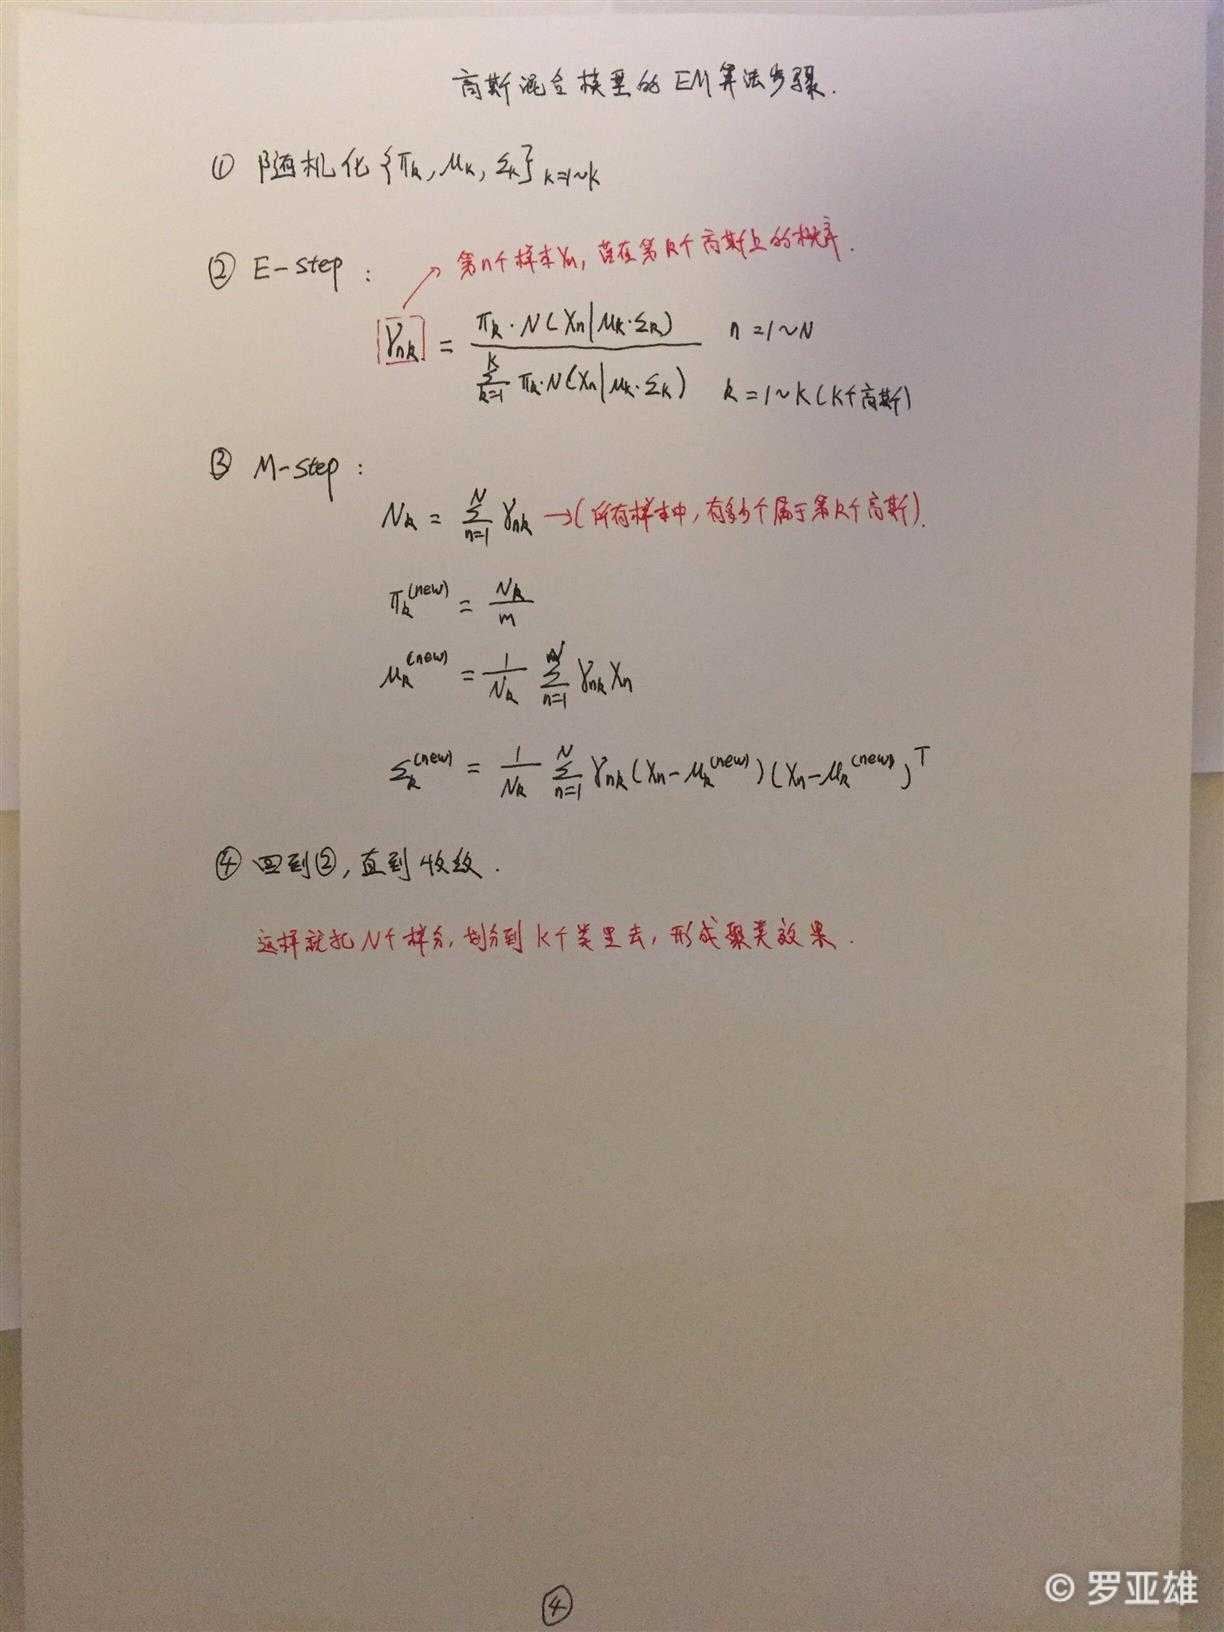 高斯混合模型的EM算法步骤.
① 随机化 {πk, μk, Σk} k=1~K
② E-step :
→ 第n个样本Xn, 落在第k个高斯上的概率.
γnk = πk·N(Xn|μk·Σk) / Σ(k=1→K) πk·N(Xn|μk·Σk)
n=1~N
k=1~K(K个高斯)
③ M-step :
Nk = Σ(n=1→N) γnk →(所有样本中,有多少个属于第k个高斯).
πk^(new) = Nk / m
μk^(new) = 1/Nk Σ(n=1→N) γnk Xn
Σk^(new) = 1/Nk Σ(n=1→N) γnk (Xn-μk^(new)) (Xn-μk^(new))^T
④ 回到②, 直到收敛.
这样就把N个样本, 划分到K个类里去, 形成聚类效果.
④
© 罗亚雄